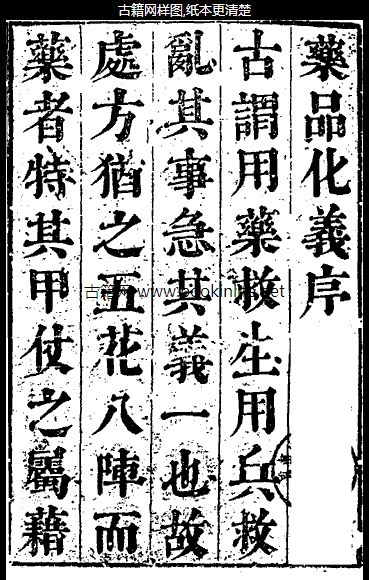 古籍网样图,纸本更清楚
藥品化義序
古謂用藥救生用兵救
亂其事急其義一也故
處方猶之五花八陣而
藥者特其甲仗之屬藉